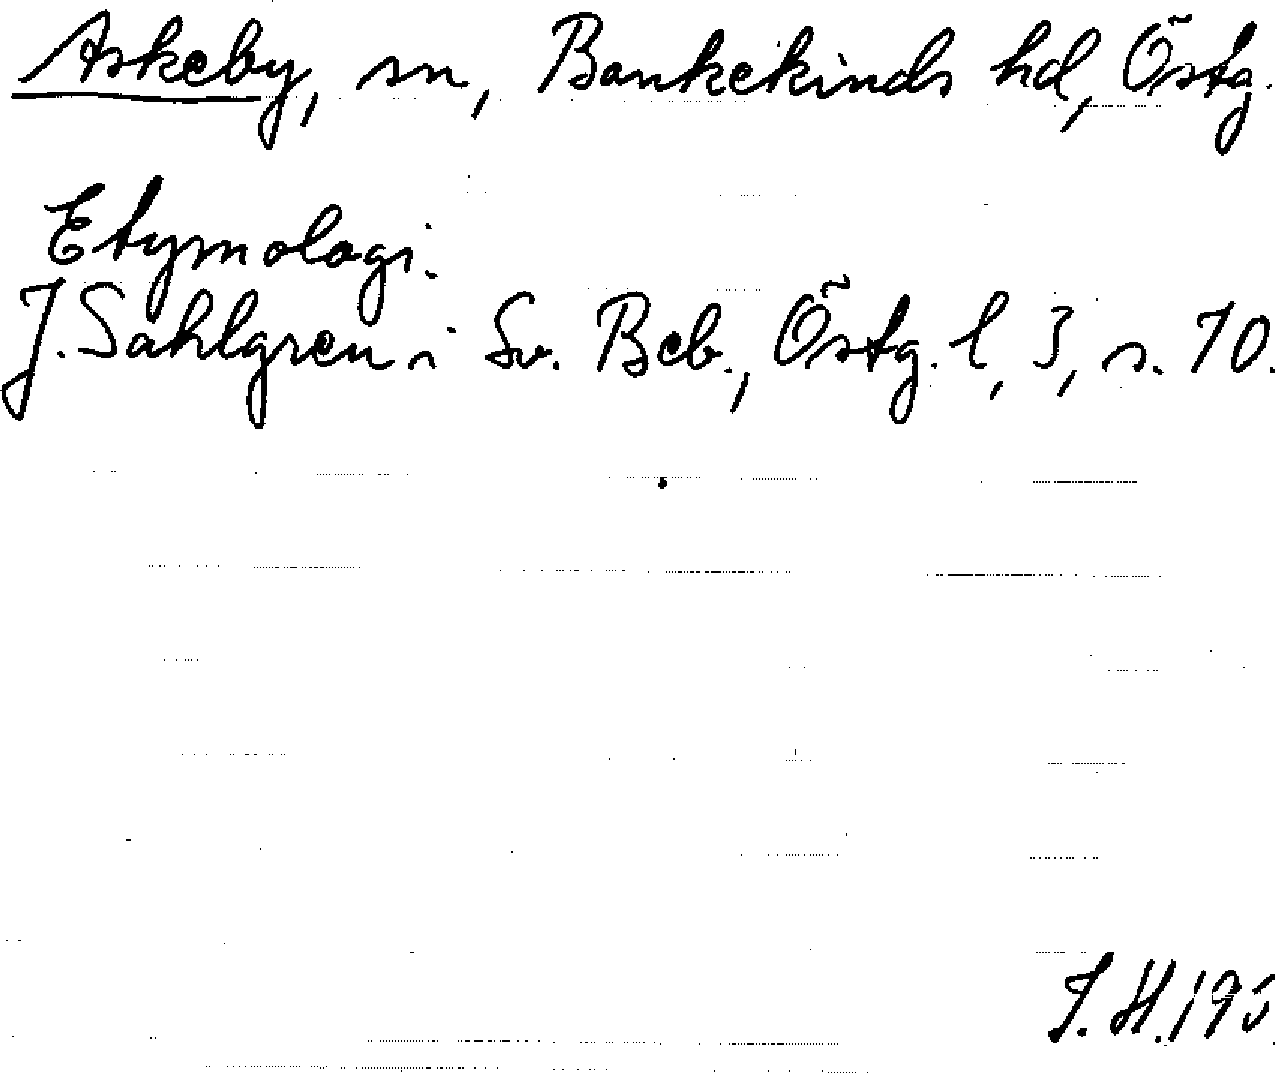 Askeby, sn, Bankekinds hd, Östg.
Etymologi.
J. Sahlgren i Sv. Beb., Östg. l, 3, s. 70.